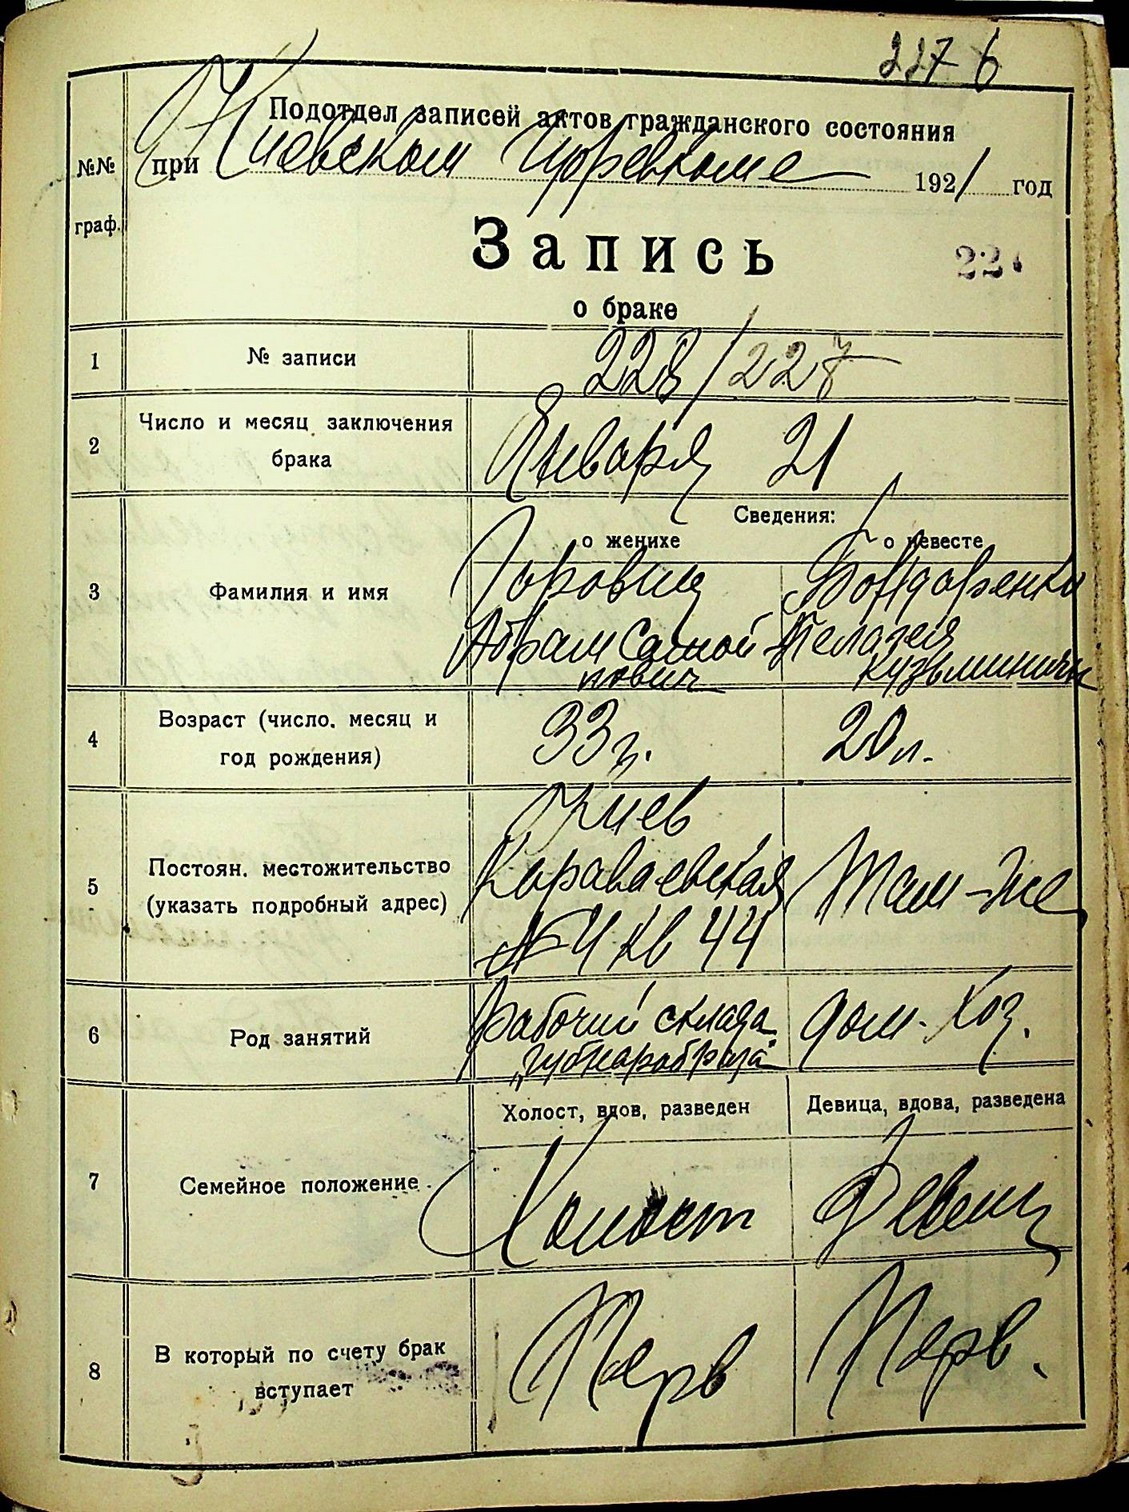 227 б
Подотдел записей актов гражданского состояния
№№ при Киевском Уревкоме 1921 год
граф.
Запись
о браке
1 № записи 228/227
2 Число и месяц заключения брака Января 21
Сведения:
о женихе о невесте
3 Фамилия и имя Горовиц Бондаренко
Абрам Самой- Пелагея
лович Кузьминична
4 Возраст (число, месяц и год рождения) 33 г. 20 л.
Киев
5 Постоян. местожительство Караваевская Там-же
(указать подробный адрес) № 4 кв 44
6 Род занятий Рабочий склада дом. хоз.
„Губнаробраза"
Холост, вдов, разведен Девица, вдова, разведена
7 Семейное положение Холост Девиц
8 В который по счету брак вступает Перв Перв.